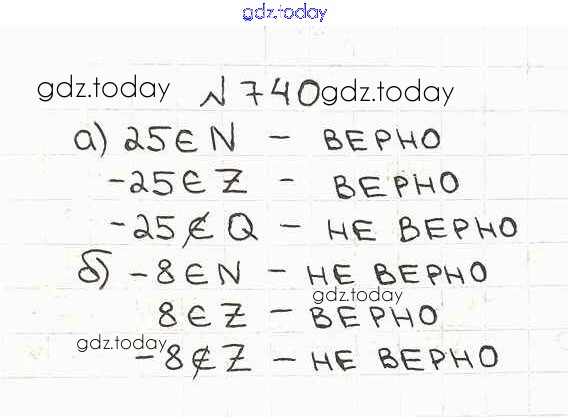 gdz.today
gdz.today № 740 gdz.today
а) 25 ∈ N – ВЕРНО
-25 ∈ Z – ВЕРНО
-25 ∉ Q – НЕ ВЕРНО
б) -8 ∈ N – НЕ ВЕРНО
gdz.today
8 ∈ Z – ВЕРНО
gdz.today
-8 ∉ Z – НЕ ВЕРНО